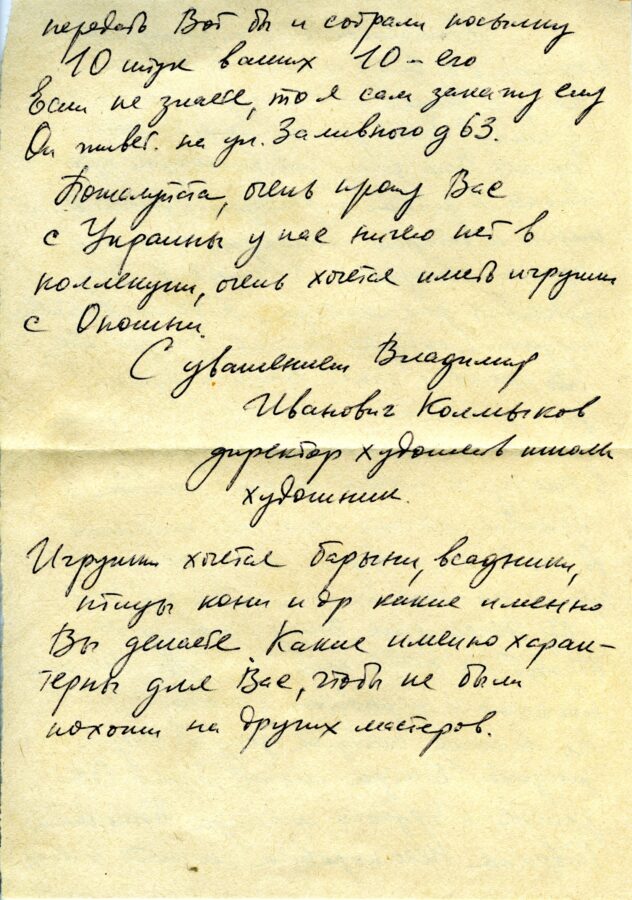 передать Вот бы и собрали посылку
10 штук ваших 10 – его
Если не знаете, то я сам закажу ему
Он живет. на ул. Заливного д 63.
Пожалуйста, очень прошу Вас
с Украины у нас ничего нет в
коллекции, очень хочется иметь игрушки
с Опошни.
С уважением Владимир
Иванович Колмыков
директор художеств школы
художник.
Игрушки хочется барыни, всадники,
птицы кони и др какие именно
Вы делаете. Какие именно харак-
терны для Вас, чтобы не были
похожи на других мастеров.